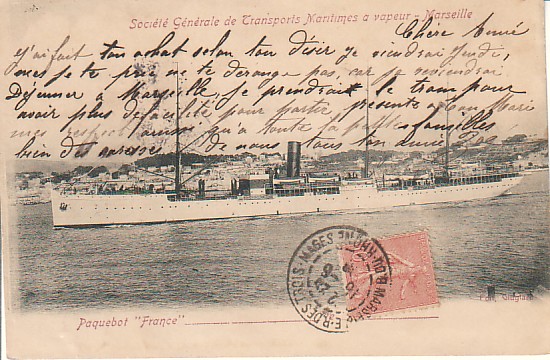 Société Générale de Transports Maritimes a vapeur - Marseille
Chère Amie
J'ai fait ton achat selon ton désir je viendrai Jeudi,
mes je te prie ne te derange pas, car je reviendrai
Déjeuner a Marseille, je prendrai le tram pour
avoir plus de facilité pour partir, présente a ton Mari
mes respect ainsi qu'a toute la famille
bien des de nous tous ton amie
Paquebot "France"
MARSEILLE